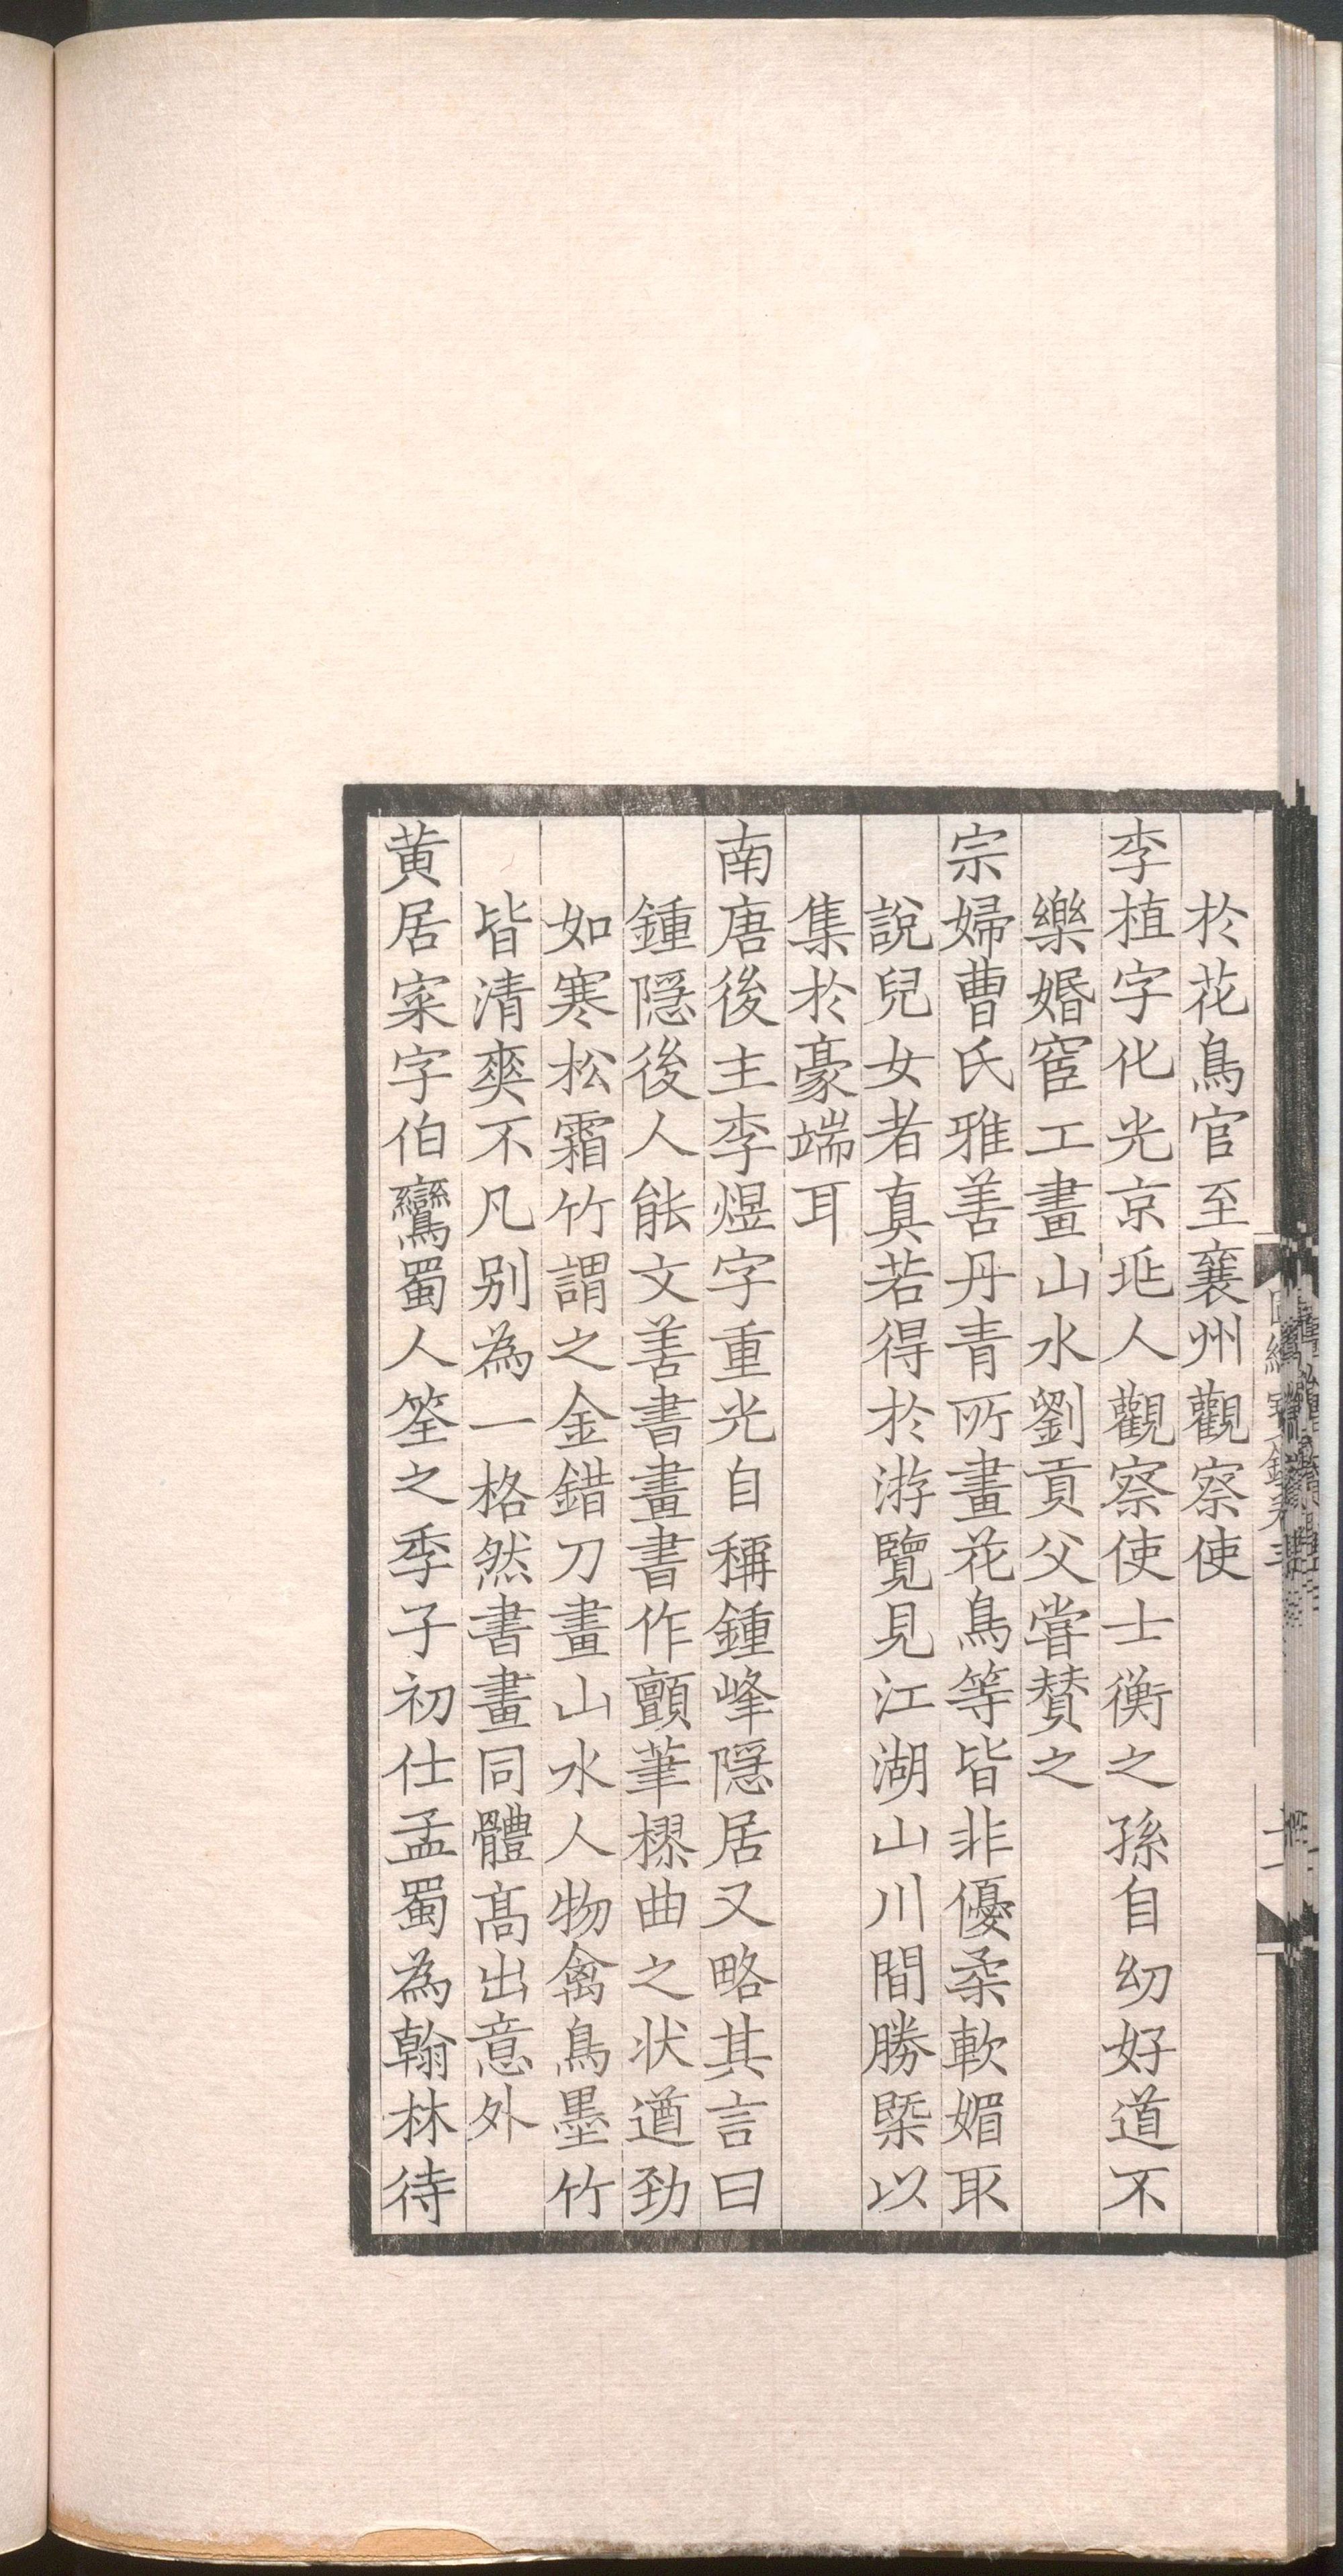 於花鳥官至襄州觀察使
李植字化光京兆人觀察使士衡之孫自幼好道不
樂婚宦工畫山水劉貢父嘗賛之
宗婦曹氏雅善丹青所畫花鳥等皆非優柔軟媚取
說兒女者真若得於游覽見江湖山川間勝槩以
集於豪端耳
南唐後主李煜字重光自稱鍾峰隱居又略其言曰
鍾隱後人能文善書畫書作顫筆樛曲之狀遒勁
如寒松霜竹謂之金錯刀畫山水人物禽鳥墨竹
皆清爽不凡別為一格然書畫同體高出意外
黃居寀字伯鸞蜀人筌之季子初仕孟蜀為翰林待